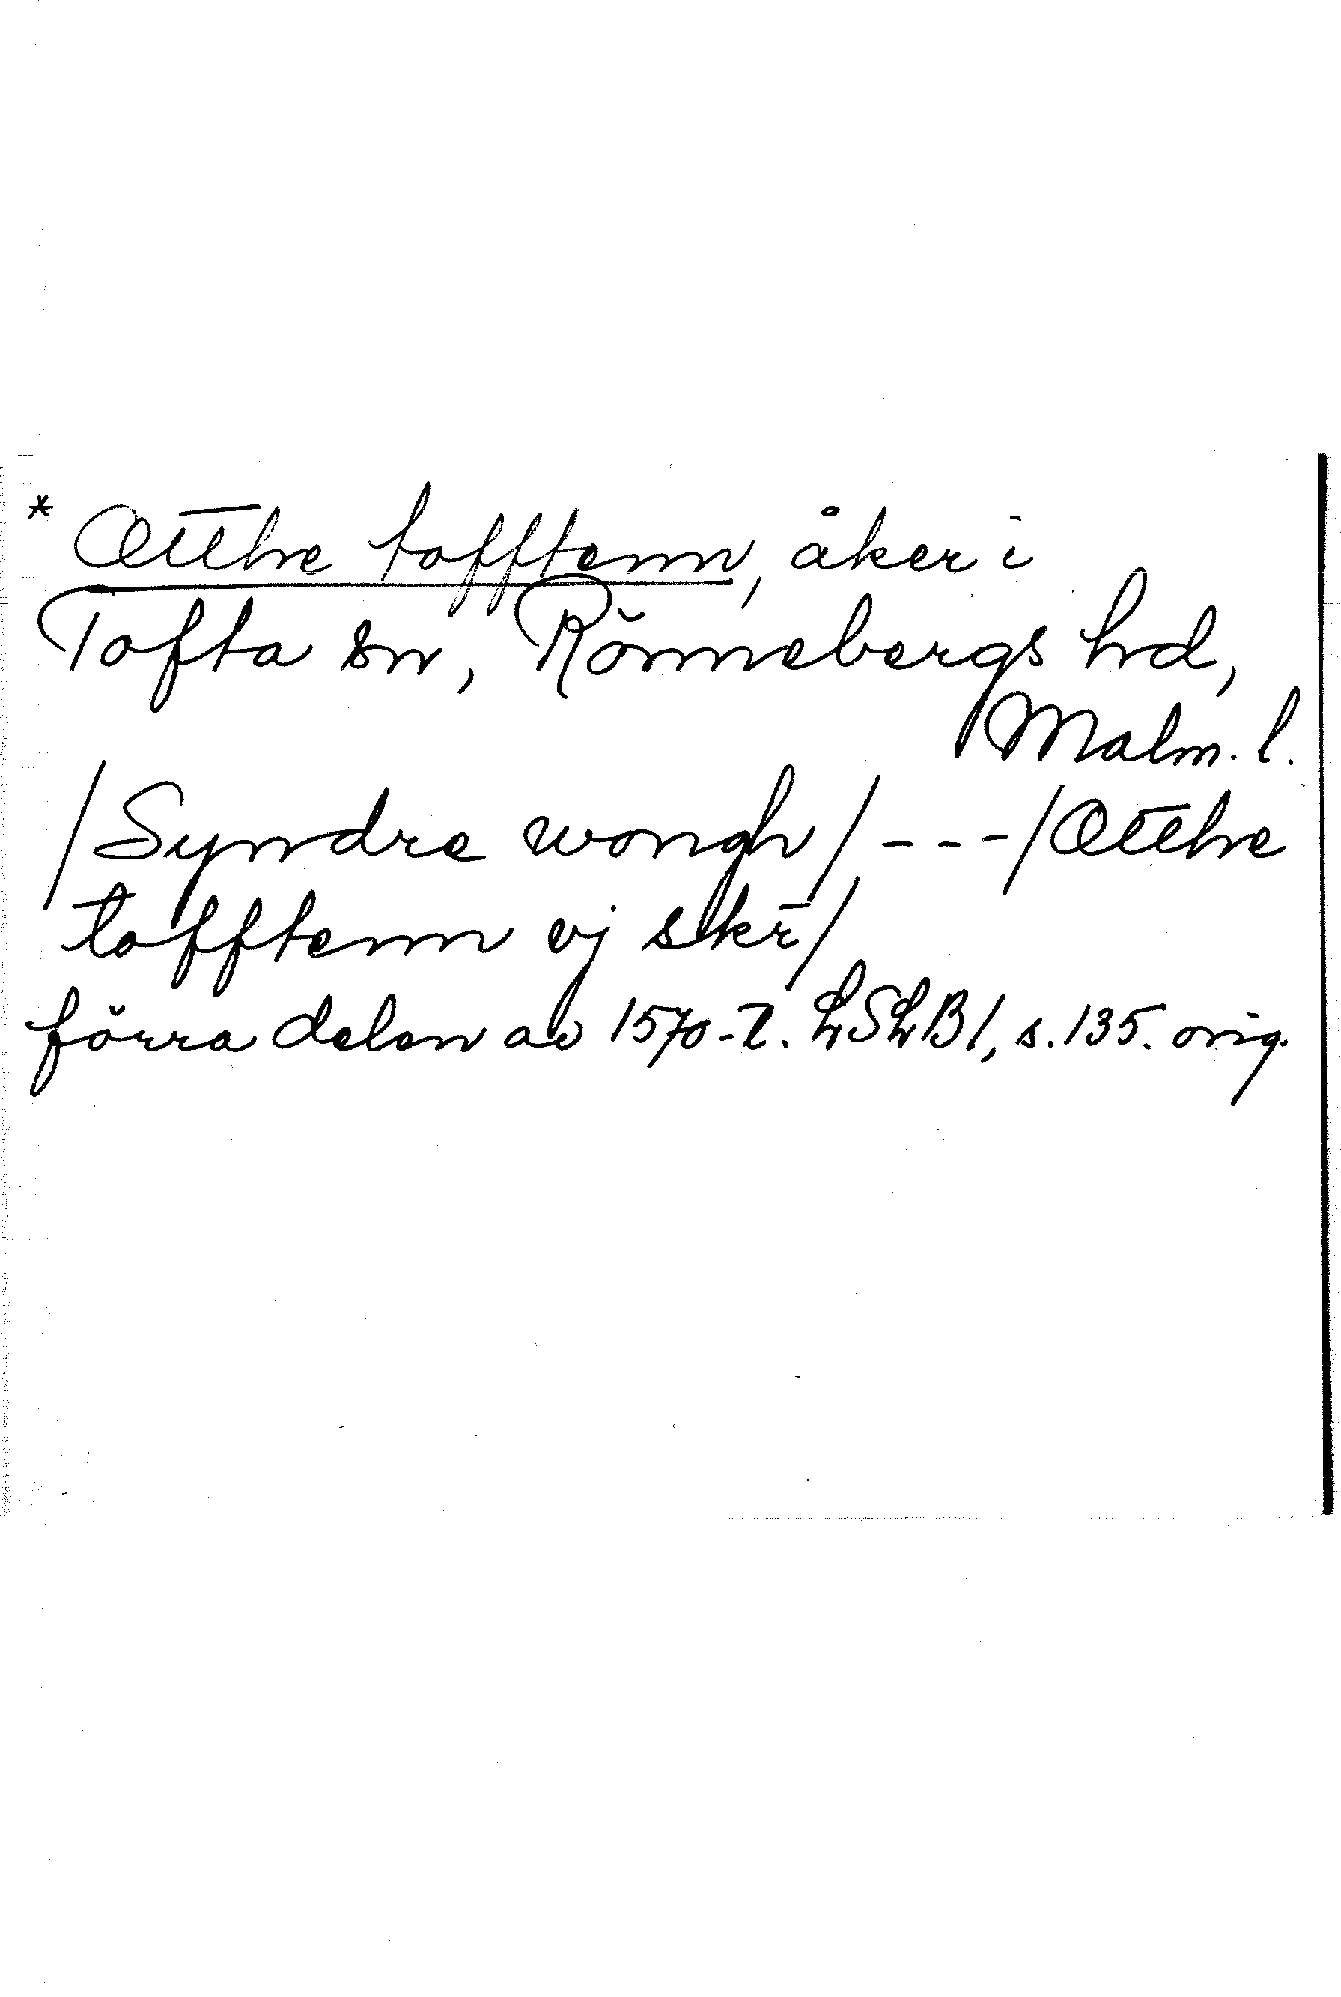 * Otthe tofftenn, åker i
Tofta sn, Rönnebergs hd,
Malm. l.
/Syndre wongh/ - - - /Otthe
tofftenn vj skr̄/
förra delen av 1570-t. LSLB1, s. 135. orig.